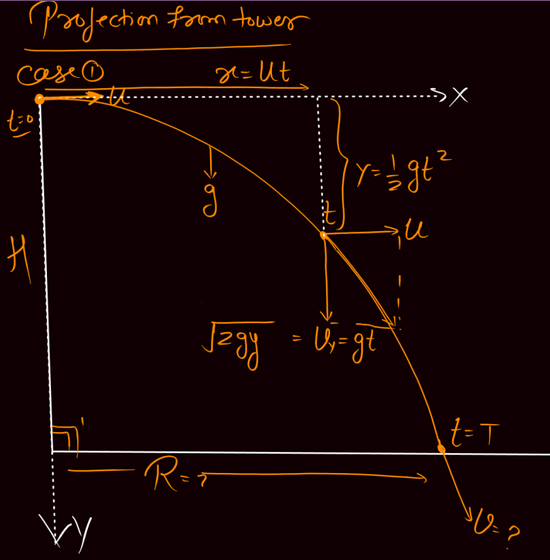 Projection from tower
case ①
x = ut
u
X
t=0
Y = ½ gt²
g
t
u
H
√2gy = Vy = gt
t = T
R = ?
V = ?
Y